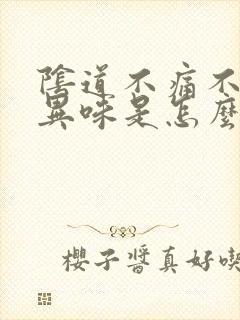 陰道不痛不
異味是怎麼
櫻子醬真好喫